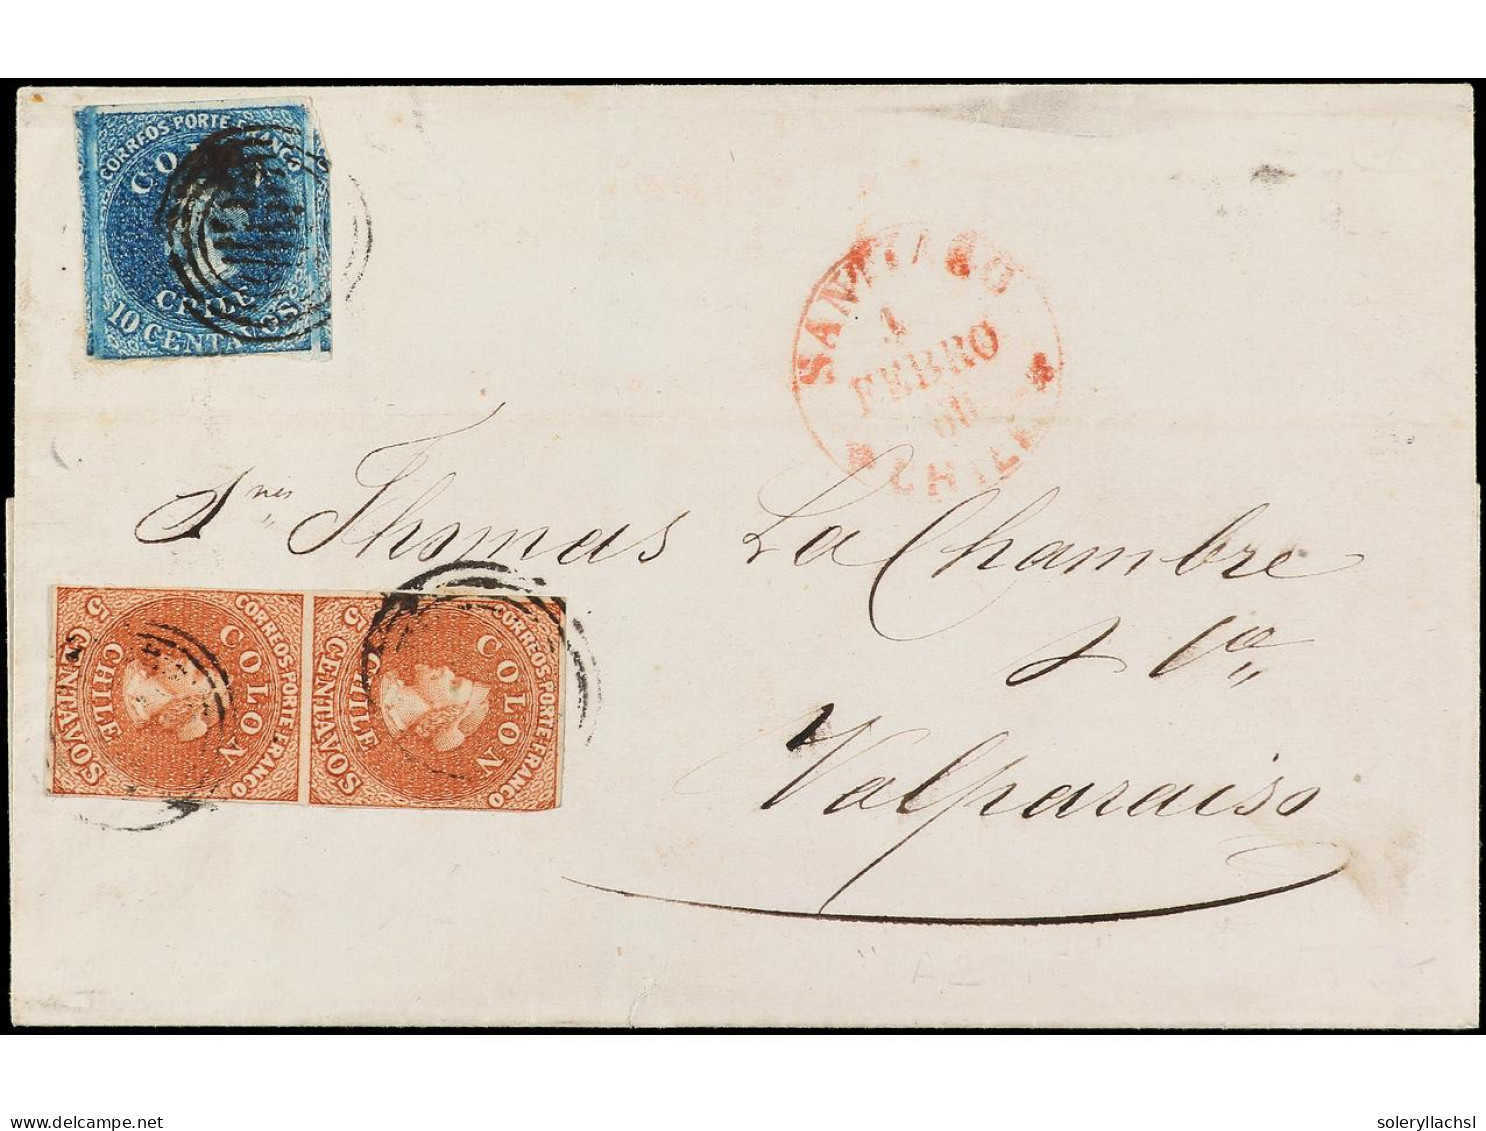 CORREOS PORTE FRANCO
COLON
CHILE
10 CENTAVOS
SANTIAGO
1
FEBRO
CHILE
Sres Thomas La Chambre
& Ca
Valparaiso
CORREOS PORTE FRANCO
COLON
CHILE
5 CENTAVOS
CORREOS PORTE FRANCO
COLON
CHILE
5 CENTAVOS
www.delcampe.net
soleryllachsl